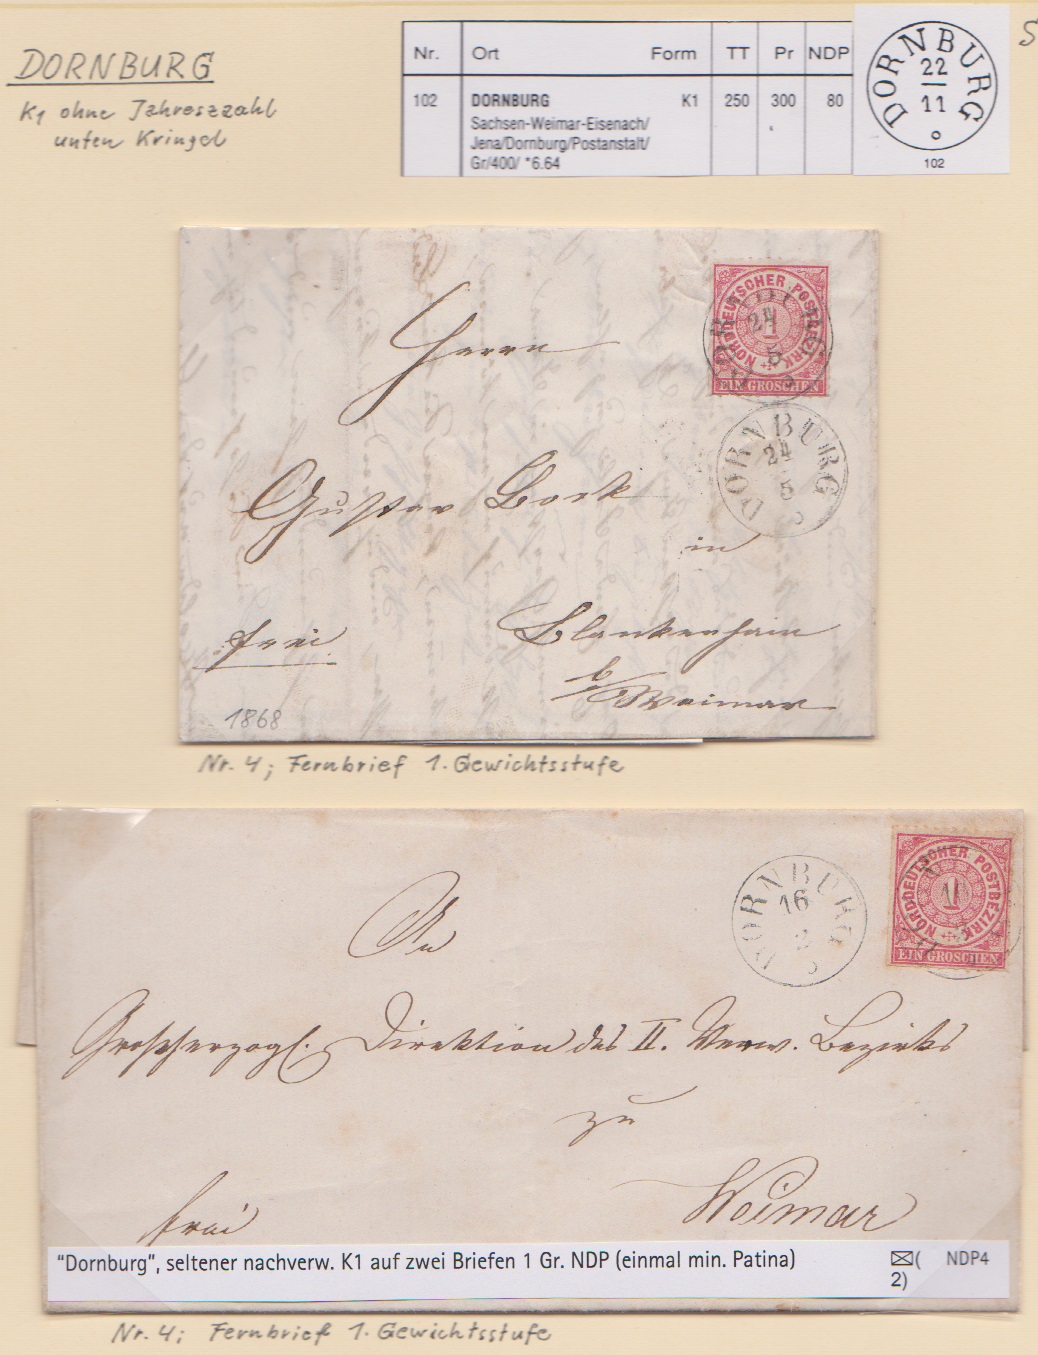 DORNBURG
K1 ohne Jahreszzahl
unten Kringel
Nr. Ort Form TT Pr NDP
102 DORNBURG K1 250 300 80
Sachsen-Weimar-Eisenach/
Jena/Dornburg/Postanstalt/
Gr/400/ *6.64
DORNBURG
22
11
102
S
NORDDEUTSCHER POSTBEZIRK
1
EIN GROSCHEN
24
5
DORNBURG
24
5
Herrn
Gustav Bock
in
Blankenhain
b/Weimar
frei
1868
Nr. 4; Fernbrief 1. Gewichtsstufe
NORDDEUTSCHER POSTBEZIRK
1
EIN GROSCHEN
DORNBURG
16
2
An
Großherzogl. Direktion des II. Verw. Bezirks
zu
Weimar
frei
"Dornburg", seltener nachverw. K1 auf zwei Briefen 1 Gr. NDP (einmal min. Patina) ✉(2) NDP4
Nr. 4; Fernbrief 1. Gewichtsstufe